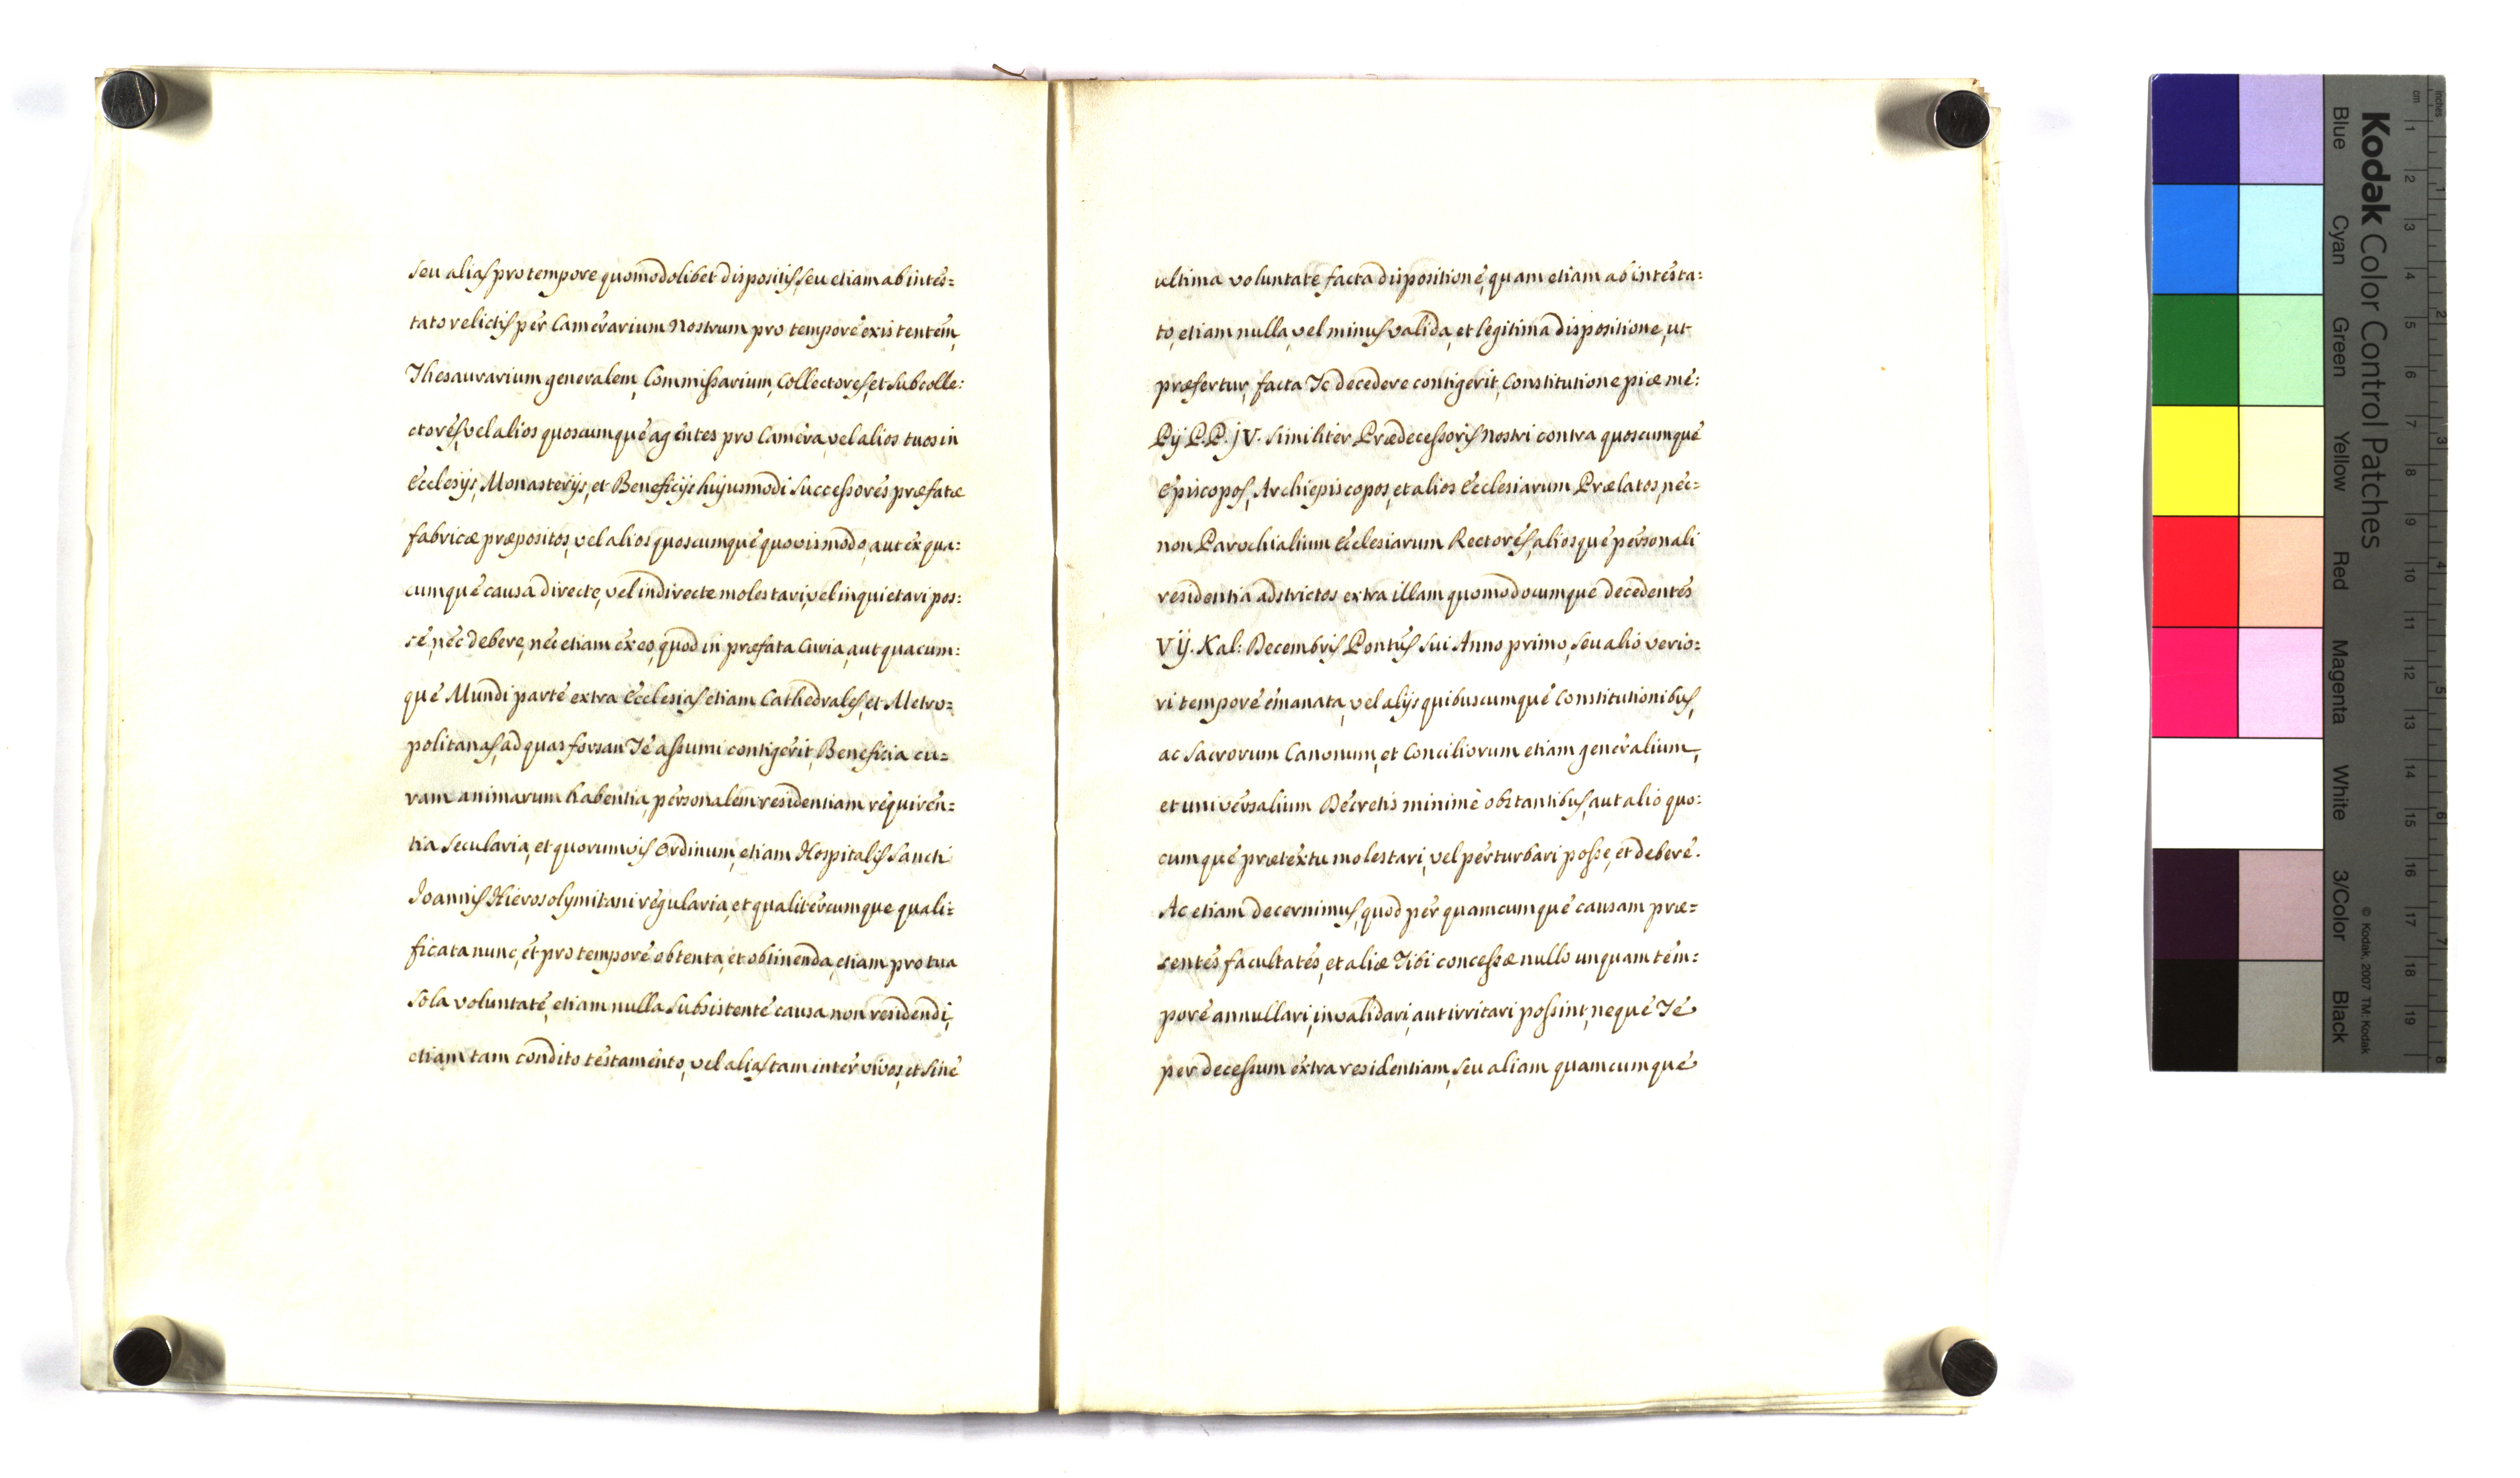 seu alias pro tempore quomodolibet dispositis, seu etiam ab intes=
tato relictis per Camerarium Nostrum pro tempore existentem,
Thesaurarium generalem, Commissarium, Collectores, et Subcolle:
ctores, vel alios quoscumque agentes pro Camera, vel alios tuos in
Ecclesijs, Monasterijs, et Beneficijs hujusmodi Successores præfatæ
fabricæ præpositos, vel alios quoscumque quovismodo, aut ex qua:
cumque causa directe, vel indirecte molestari, vel inquietari pos:
se, nec debere, nec etiam ex eo, quod in præfata Curia, aut quacum:
que Mundi parte extra Ecclesias etiam Cathedrales, et Metro=
politanas, ad quas forsan Te assumi contigerit, Beneficia cu=
ram animarum habentia, personalem residentiam requiren=
tia Secularia, et quorumvis Ordinum, etiam Hospitalis Sancti
Joannis Hierosolymitani regularia, et qualitercumque quali=
ficata nunc, et pro tempore obtenta, et obtinenda, etiam pro tua
sola voluntate, etiam nulla subsistente causa non residendi,
etiam tam condito testamento, vel alias tam inter vivos, et sine
ultima voluntate facta dispositione, quam etiam ab intesta:
to, etiam nulla, vel minus valida, et legitima dispositione, ut
præfertur, facta Te decedere contigerit, Constitutione piæ me:
Pij P.P. jV. similiter Prædecessoris Nostri contra quoscumque
Episcopos, Archiepiscopos, et alios Ecclesiarum Prælatos, nec=
non Parochialium Ecclesiarum Rectores, aliosque personali
residentia adstrictos extra illam quomodocumque decedentes
Vij. Kal: Decembris Pontus Sui Anno primo, seu alio verio=
ri tempore emanata, vel alijs quibuscumque Constitutionibus,
ac Sacrorum Canonum, et Conciliorum etiam generalium,
et universalium Decretis minime obstantibus, aut alio quo:
cumque prætextu molestari, vel perturbari posse, et debere.
Ac etiam decernimus, quod per quamcumque causam præ=
sentes facultates, et aliæ Tibi concessæ nullo unquam tem=
pore annullari, invalidari, aut irritari possint, neque Te
per decessum extra residentiam, seu aliam quamcumque
Kodak Color Control Patches
Blue Cyan Green Yellow Red Magenta White 3/Color Black
© Kodak, 2007 TM: Kodak
cm 1 2 3 4 5 6 7 8 9 10 11 12 13 14 15 16 17 18 19
Inches 1 2 3 4 5 6 7 8